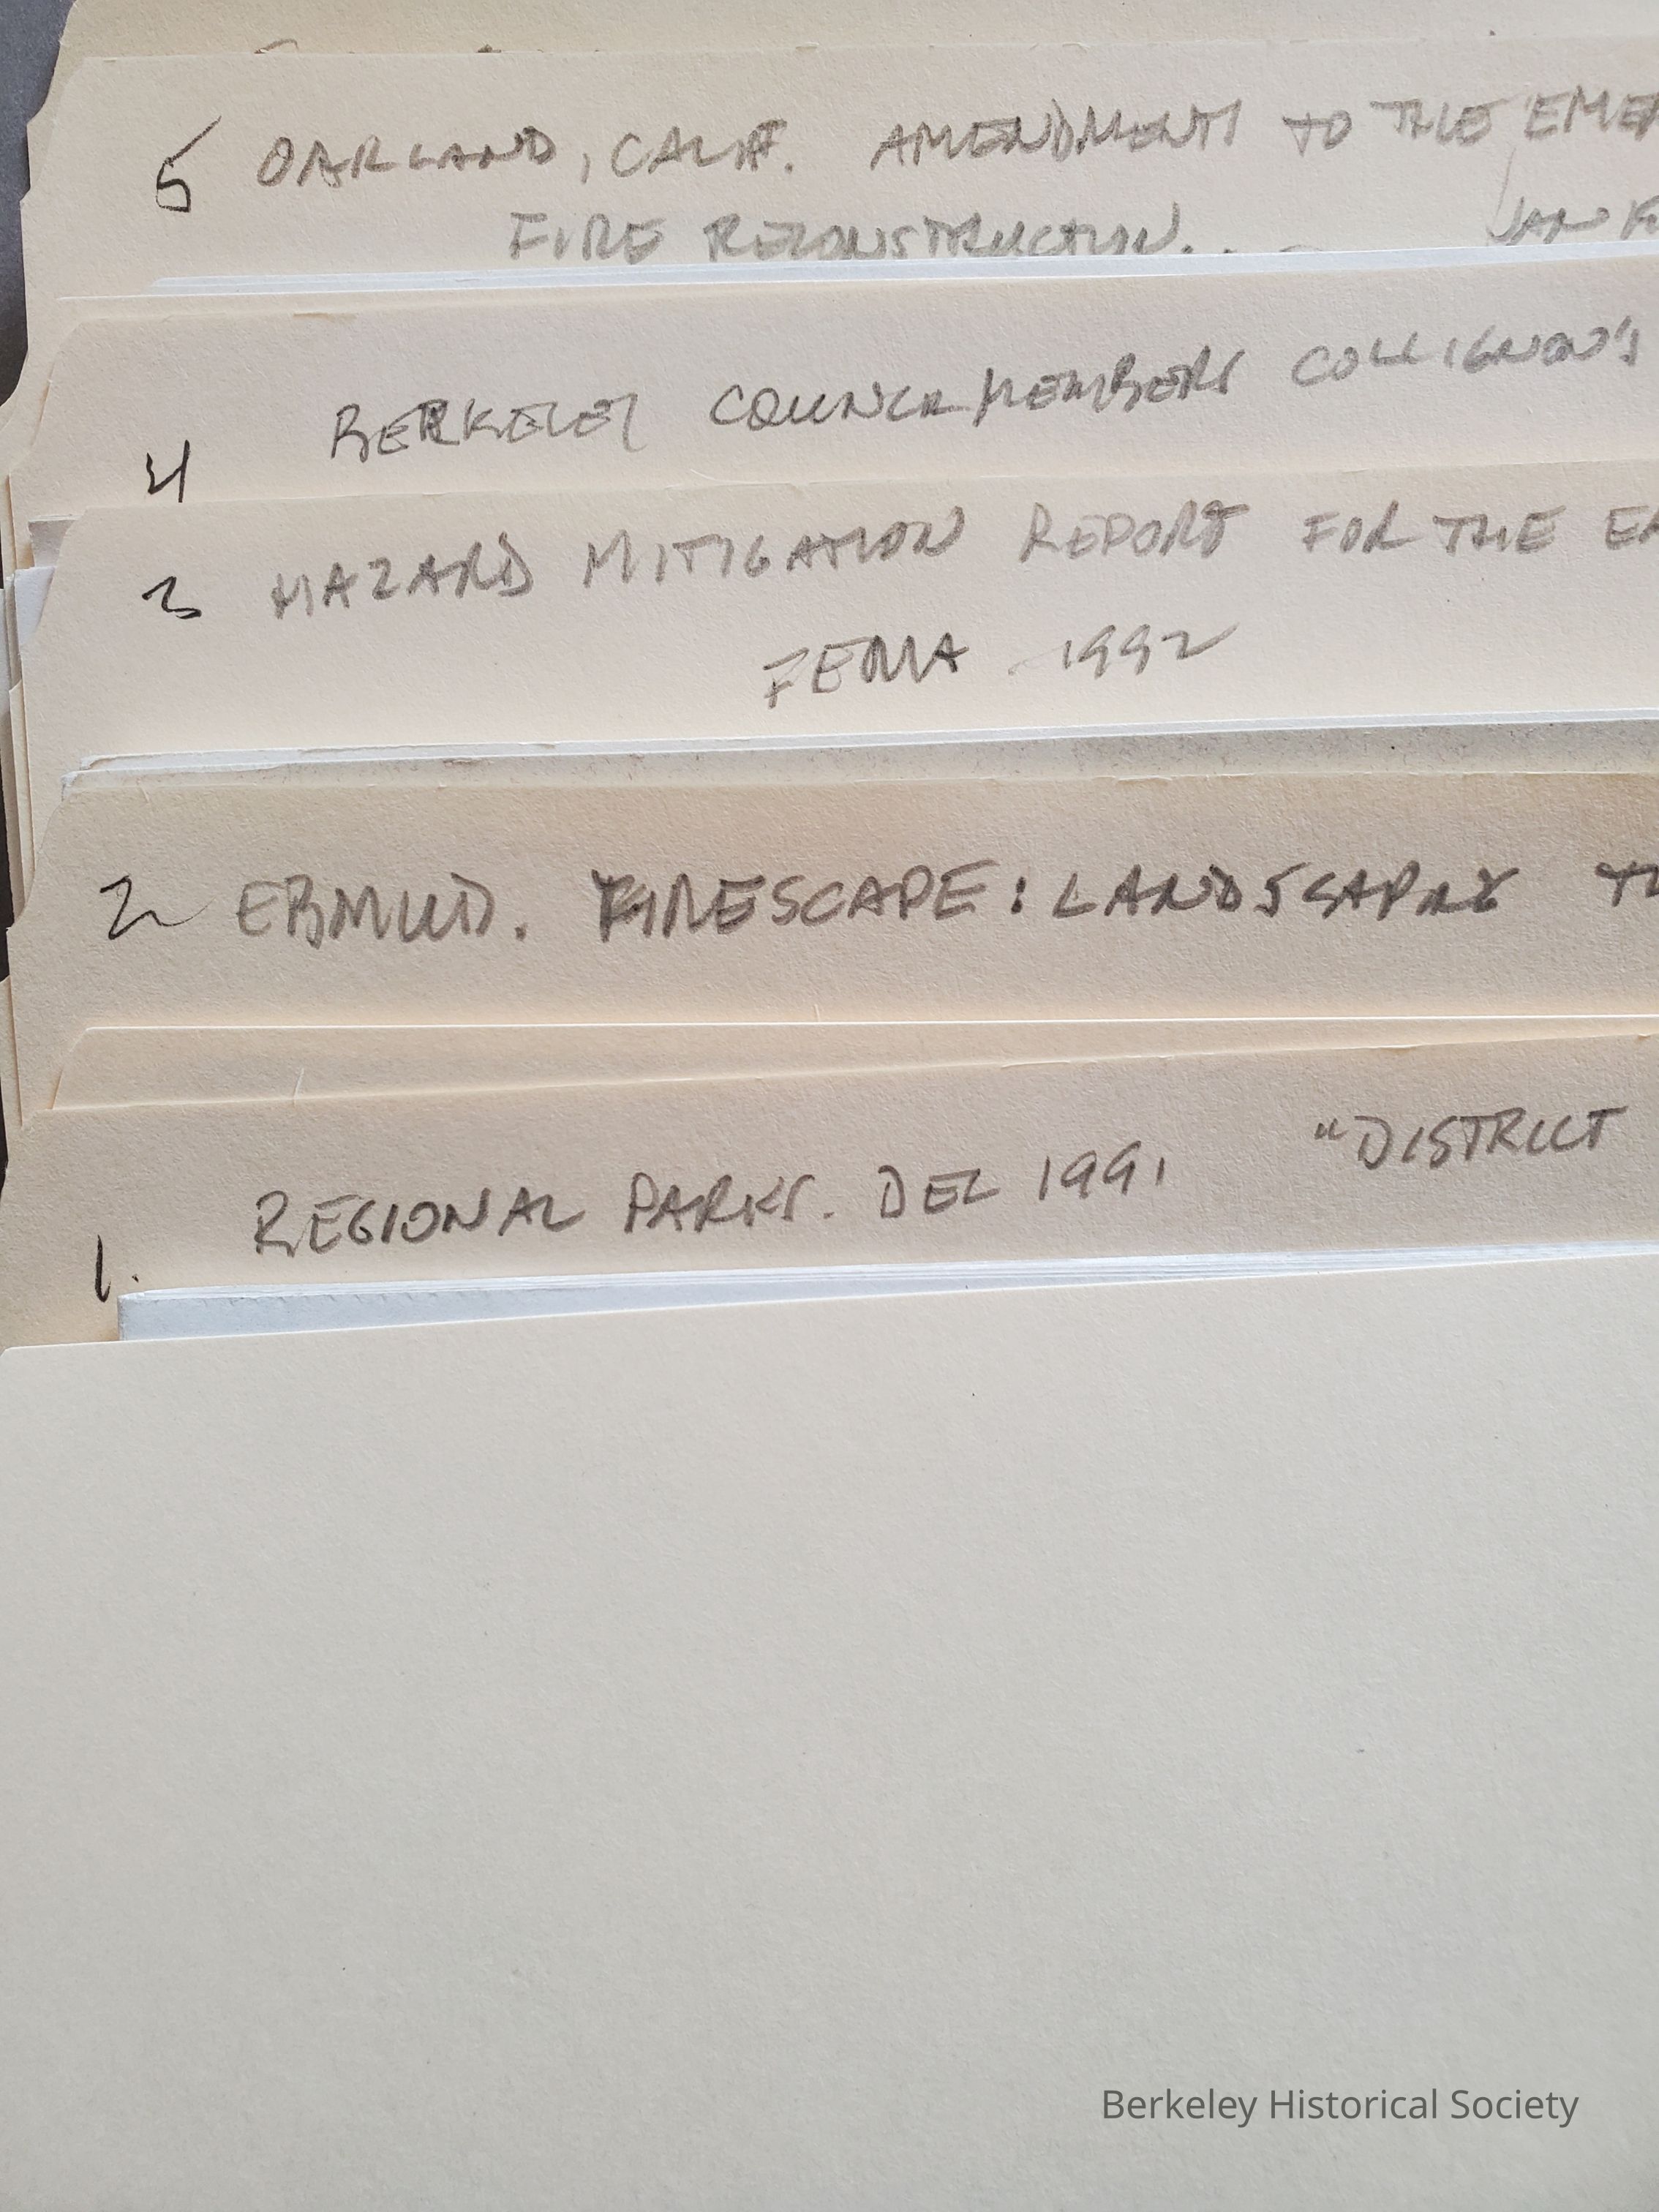 5 OAKLAND, CALIF. AMENDMENTS TO THE EMER
FIRE RECONSTRUCTION... JAN
4 BERKELEY COUNCILMEMBERS COLLIGNON'S
3 HAZARD MITIGATION REPORT FOR THE EA
FEMA 1992
2 EBMUD. FIRESCAPE: LANDSCAPING
1. REGIONAL PARKS. DEC 1991 "DISTRICT
Berkeley Historical Society